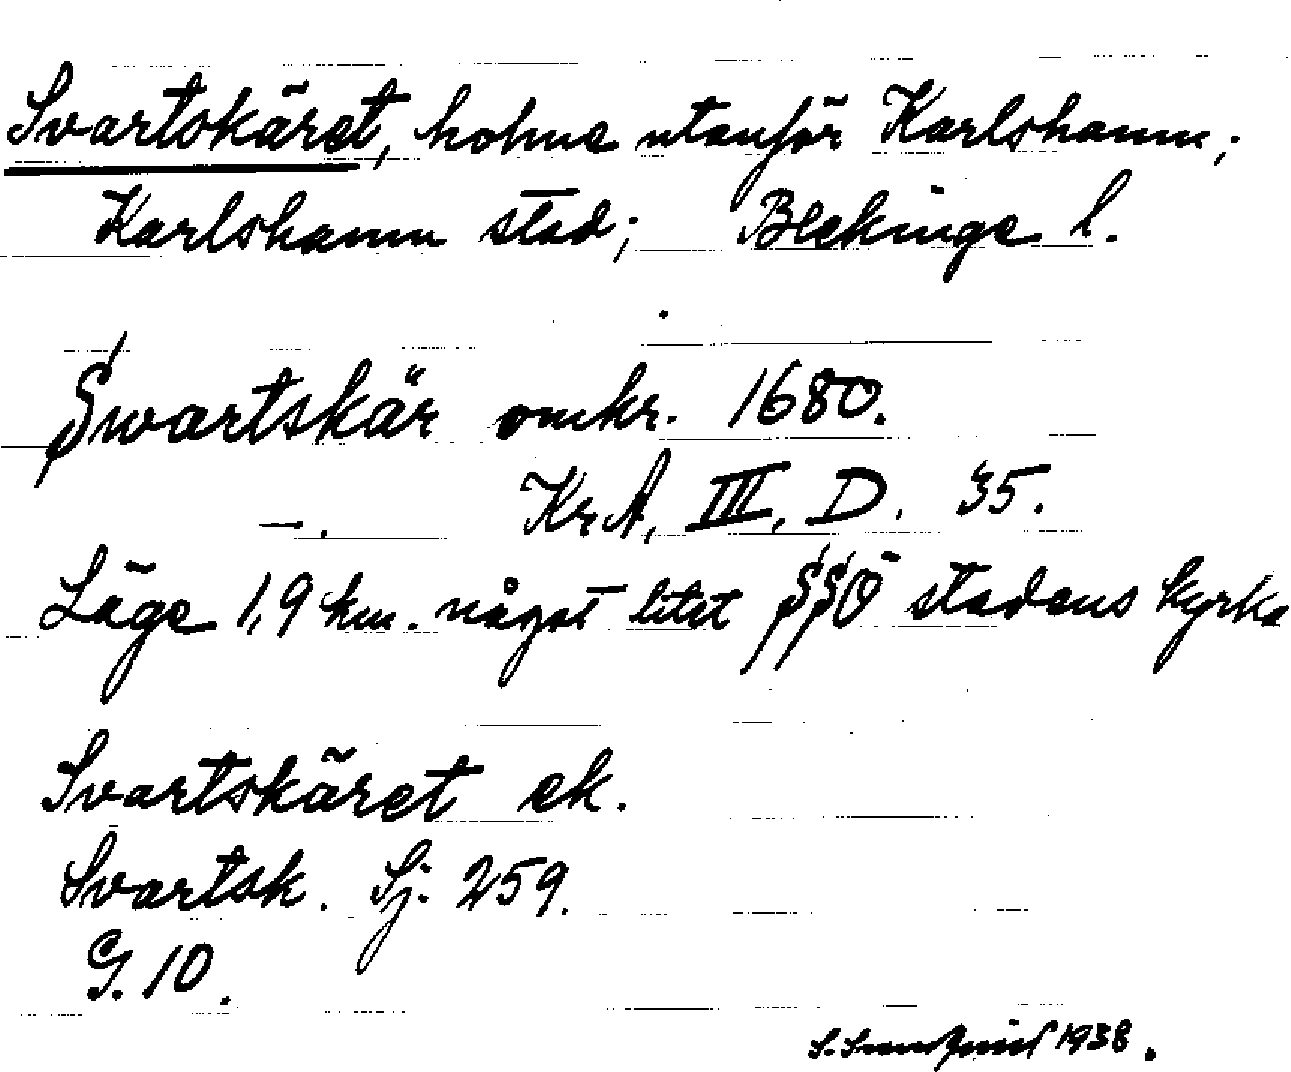 Svartskäret, holme utanför Karlshamn;
Karlshamn stad; Blekinge l.
Swartskär omkr. 1680.
—. KrA, III, D. 35.
Läge 1,9 km. något litet SSÖ stadens kyrka
Svartskäret ek.
Svartsk. Sj. 259.
G. 10.
1938.